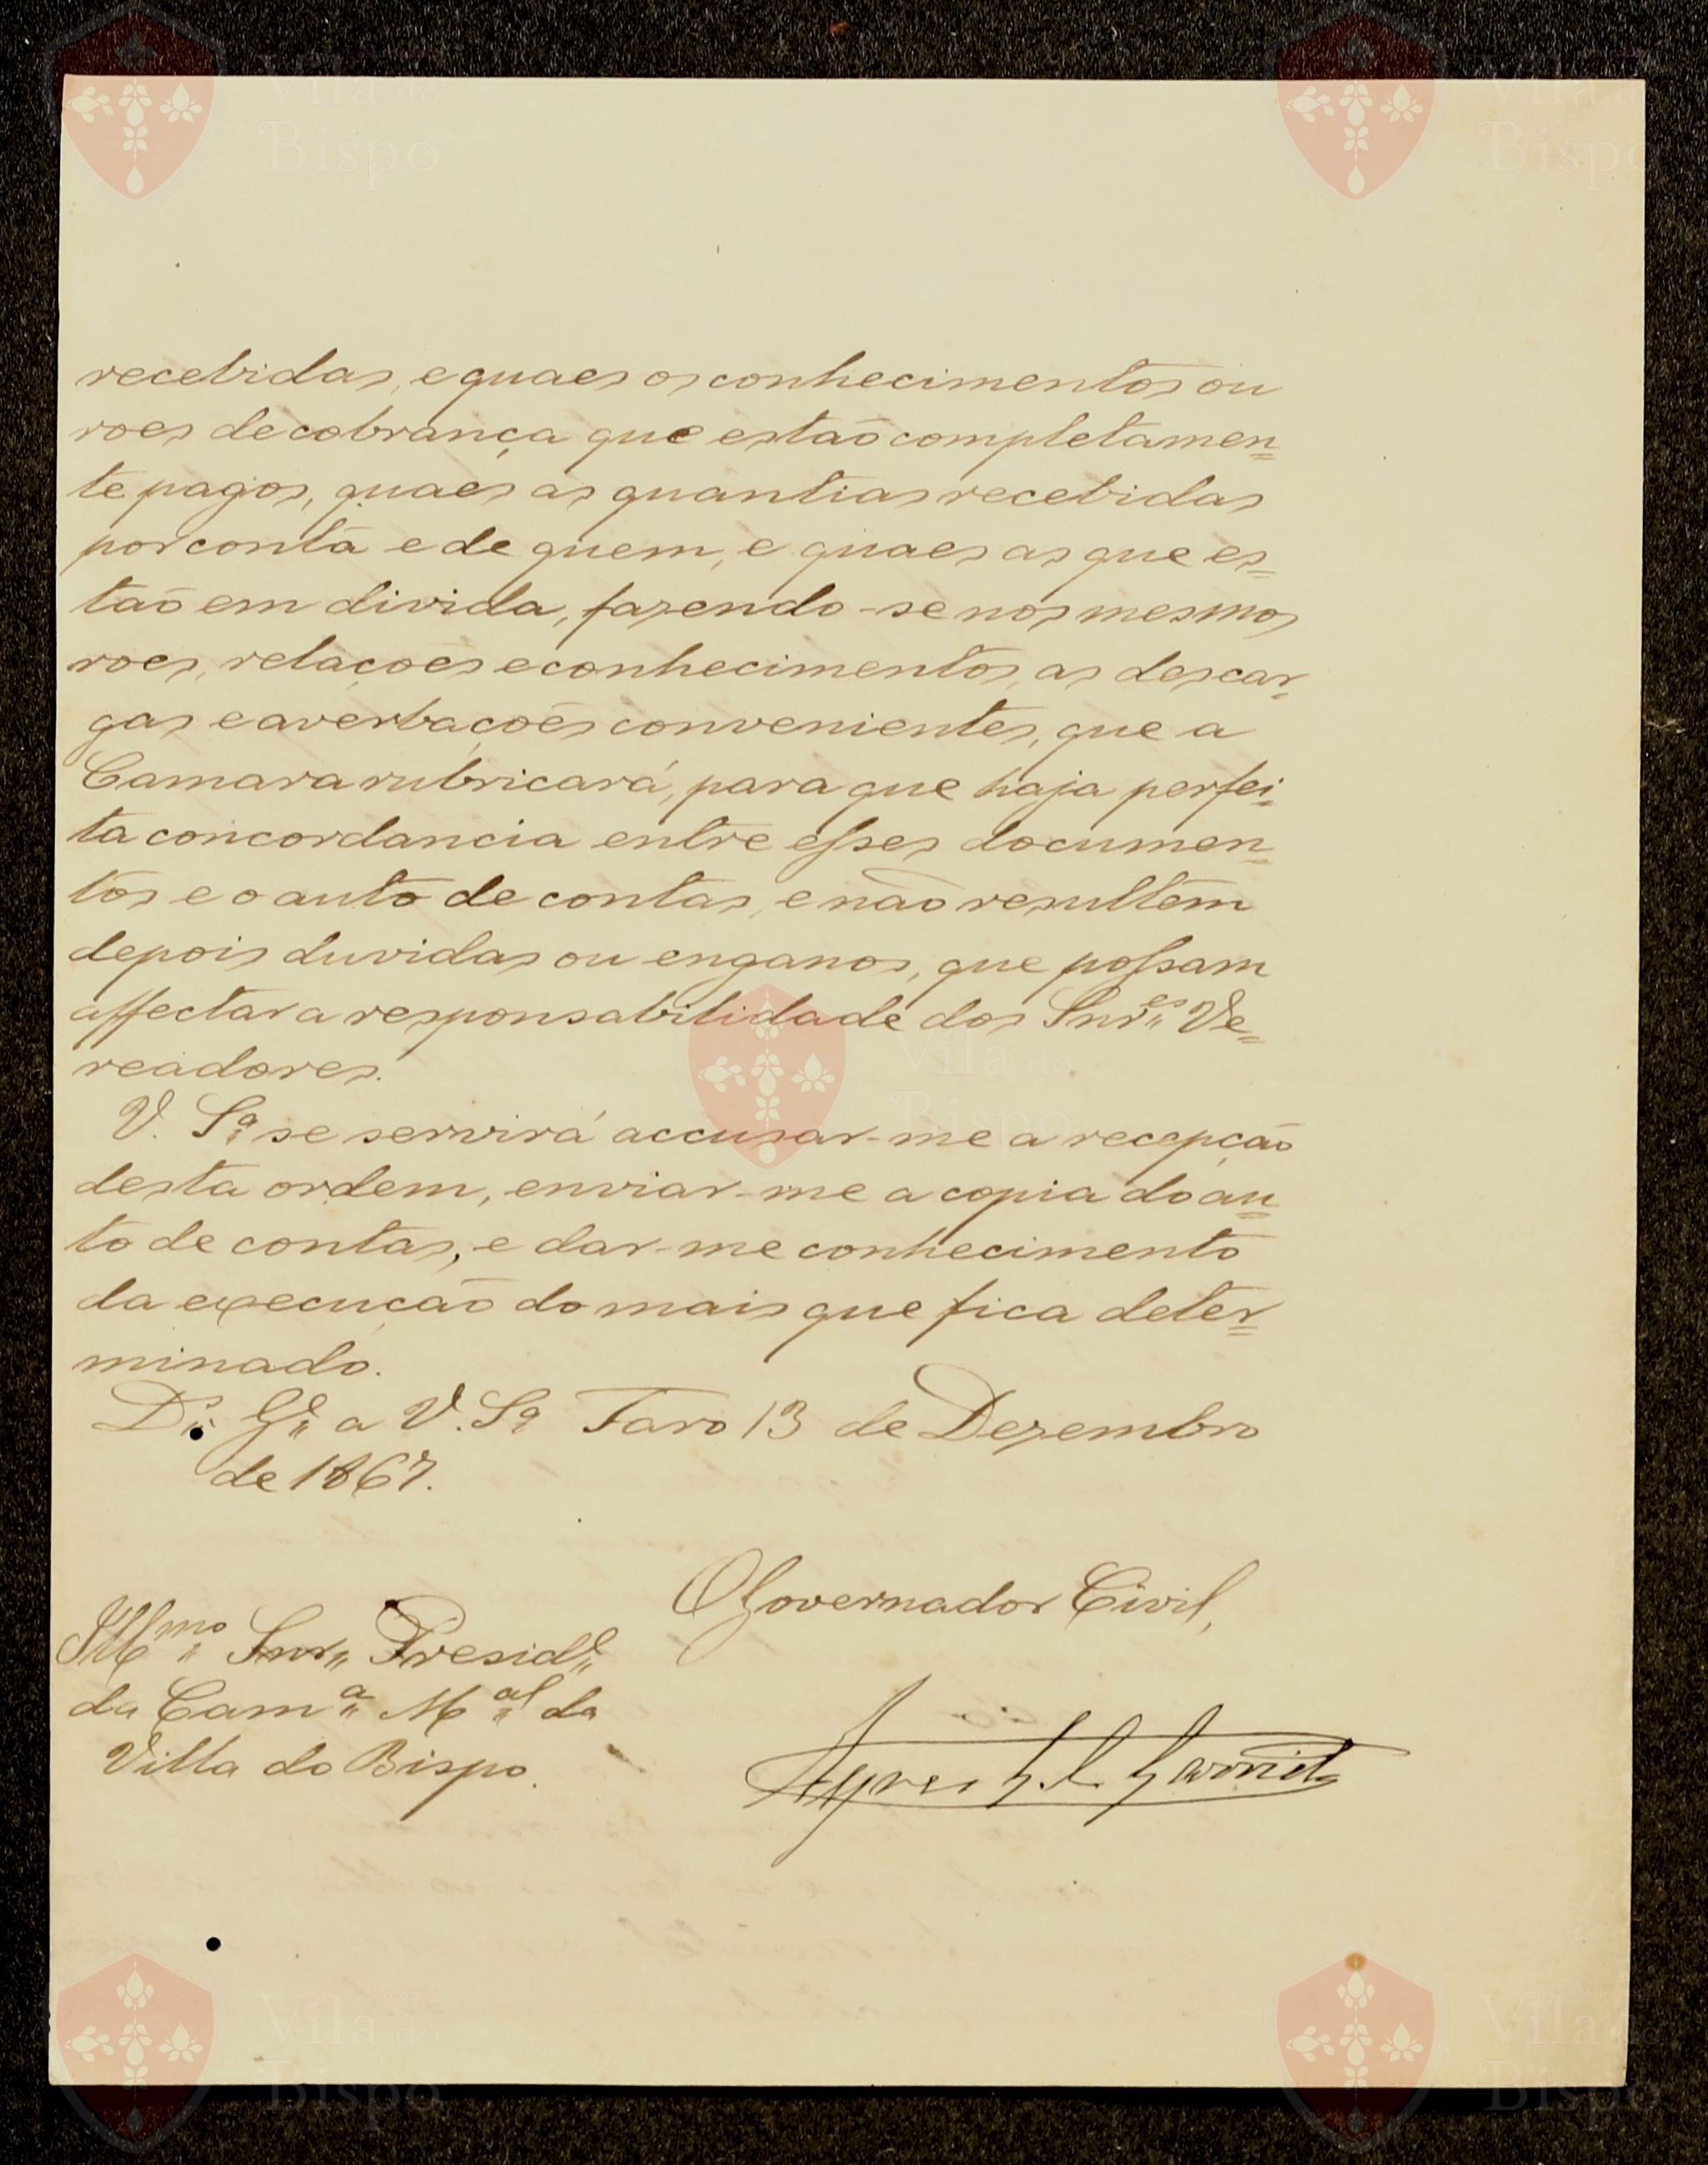 recebidas, e quaes os conhecimentos ou
roes de cobrança que estão completamen=
te pagos, quaes as quantias recebidas
por conta e de quem, e quaes as que es=
tão em divida, fazendo-se nos mesmos
roes, relações e conhecimentos, as descar=
gas e averbações convenientes, que a
Camara rubricará, para que haja perfei=
ta concordancia entre esses documen=
tos e o auto de contas, e não resultem
depois duvidas ou enganos, que possam
affectar a responsabilidade dos Snr.es Ve=
readores.
V. Sª se servirá accusar-me a recepção
desta ordem, enviar-me a copia do au=
to de contas, e dar-me conhecimento
da execução do mais que fica deter=
minado.
D.s G.e a V. Sª Faro 13 de Dezembro
de 1867.
O Governador Civil,
Ill.mo Snr. Presid.e
da Cam.a M.al da
Villa do Bispo.
Vila do
Bispo